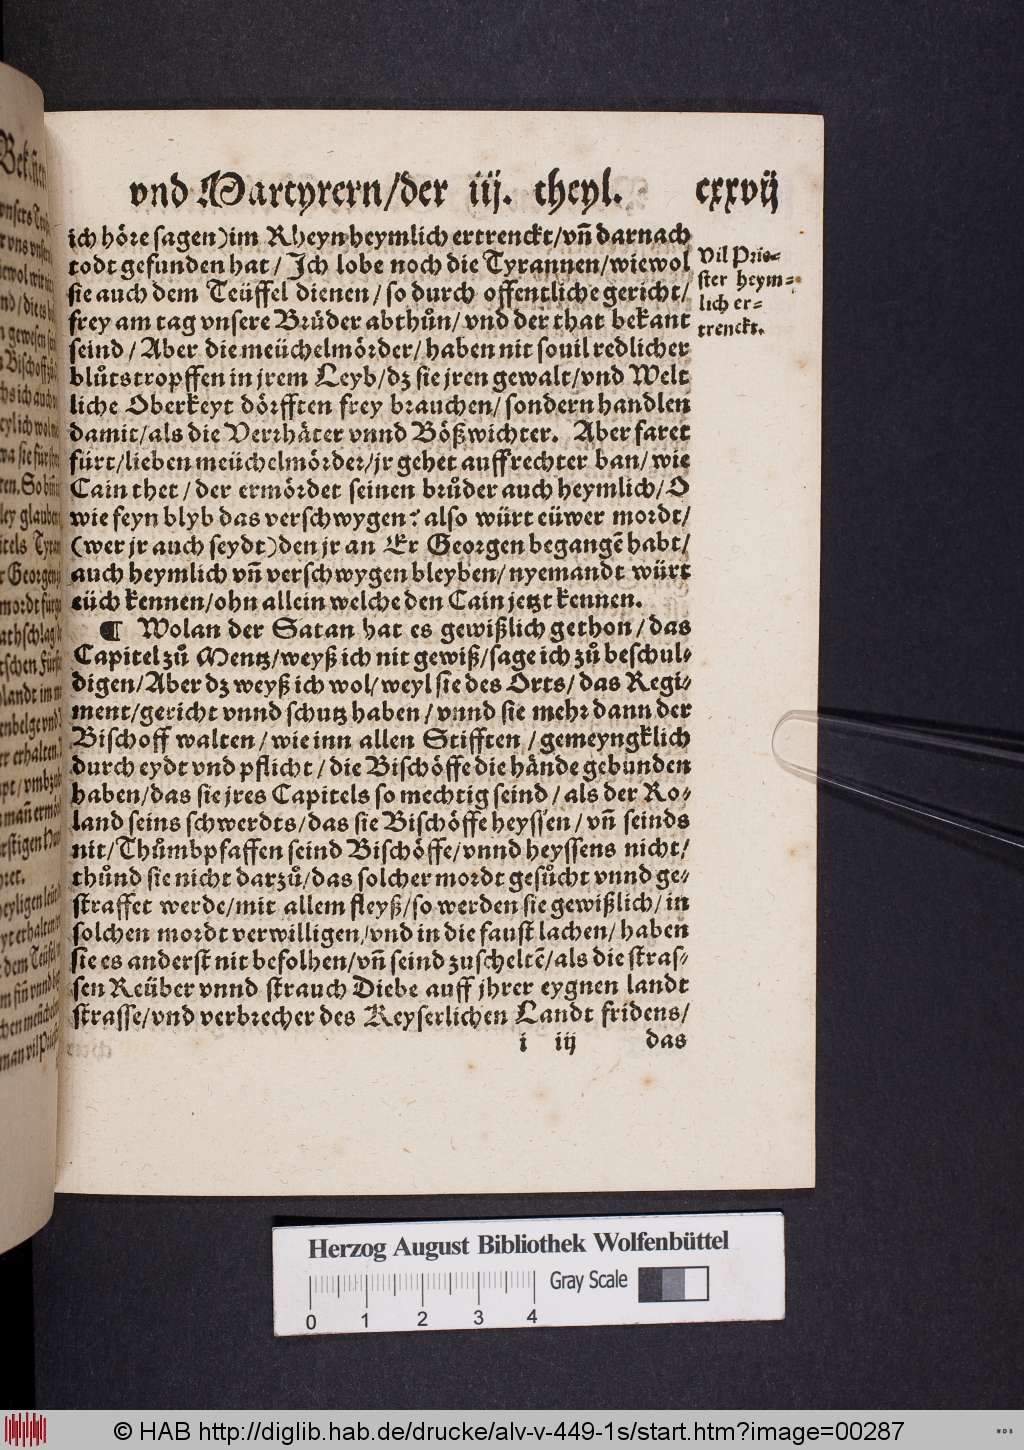 vnd Martyrern/der iij. theyl. cxxvij
ich höre sagen)im Rheyn heymlich ertrenckt/vñ darnach
todt gefunden hat/ Ich lobe noch die Tyrannen/wiewol
sie auch dem Teüffel dienen/so durch offentliche gericht/
frey am tag vnsere Brüder abthůn/vnd der that bekant
seind/Aber die meüchelmörder/haben nit souil redlicher
blůtstropffen in jrem Leyb/dz sie jren gewalt/vnd Welt
liche Oberkeyt dörfften frey brauchen/sondern handlen
damit/als die Verrhäter vnnd Bößwichter. Aber faret
fürt/lieben meüchelmörder/jr gehet auff rechter ban/wie
Cain thet/der ermördet seinen brůder auch heymlich/O
wie feyn blyb das verschwygen? also würt eüwer mordt/
(wer jr auch seydt)den jr an Er Georgen begangẽ habt/
auch heymlich vñ verschwygen bleyben/nyemandt würt
eüch kennen/ohn allein welche den Cain jetzt kennen.
¶ Wolan der Satan hat es gewißlich gethon/das
Capitel zů Mentz/weyß ich nit gewiß/sage ich zů beschul-
digen/Aber dz weyß ich wol/weyl sie des Orts/das Regi-
ment/gericht vnnd schutz haben/vnnd sie mehr dann der
Bischoff walten/wie inn allen Stifften/gemeyngklich
durch eydt vnd pflicht/die Bischöffe die hände gebunden
haben/das sie jres Capitels so mechtig seind/als der Ro-
land seins schwerdts/das sie Bischöffe heyssen/vñ seinds
nit/Thůmbpfaffen seind Bischöffe/vnnd heyssens nicht/
thůnd sie nicht darzů/das solcher mordt gesůcht vnnd ge-
straffet werde/mit allem fleyß/so werden sie gewißlich/in
solchen mordt verwilligen/vnd in die faust lachen/haben
sie es anderst nit befolhen/vñ seind zuscheltẽ/als die stras-
sen Reüber vnnd strauch Diebe auff jhrer eygnen landt
strasse/vnd verbrecher des Keyserlichen Landt fridens/
i iij das
Vil Prie-
ster heym-
lich er-
trenckt.
Herzog August Bibliothek Wolfenbüttel
Gray Scale
0 1 2 3 4
© HAB http://diglib.hab.de/drucke/alv-v-449-1s/start.htm?image=00287